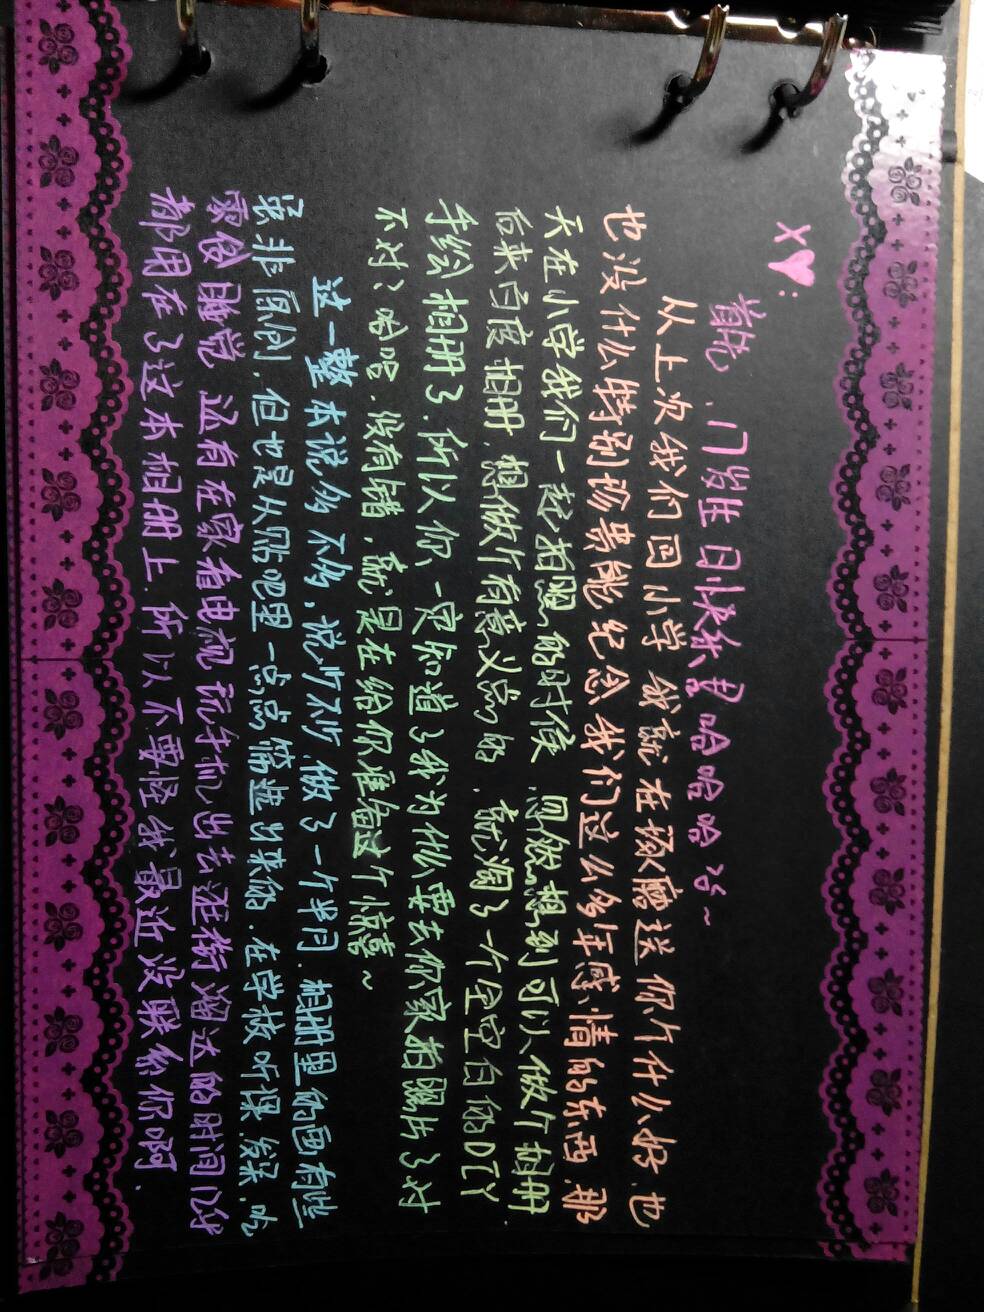 X♥:
首先,门发生日快乐!哈哈哈哈~
从上次我们回小学 我就在琢磨送你个什么好.也
也没什么特别珍贵能纪念我们这么多年感情的东西.那
天在小学我们一起拍照的时候.忽然想到可以做个相册
后来百度相册.想做个有意义点的.就淘了一个全空白的DIY
手绘相册了.所以你一定知道了我为什么要去你家拍照片了对
不对?哈哈.没有错,就是在给你准备这个惊喜~
这一整本说多不多,说少不少.做了一个半月.相册里的画有些
是非原创.但也是从贴吧里一点点筛选出来的.在学校听课发呆.吃
零食睡觉 还有在家看电视玩手机出去逛街溜达的时间几乎
都用在了这本相册上.所以不要怪我最近没联系你啊.